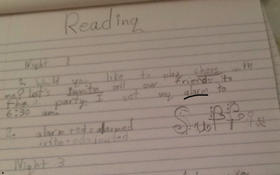 Reading
Night 1
1. Would you like to play chess with
me? Let's invite all our friends to
the party. I set my alarm to
6:30 am.
2. alarm + ed = alarmed
Night 3